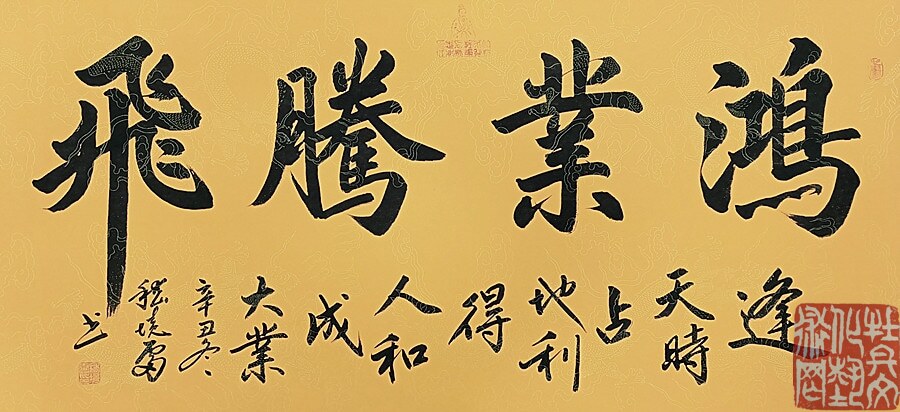 鴻業騰飛
逢天時占地利得人和成大業
辛丑冬
書